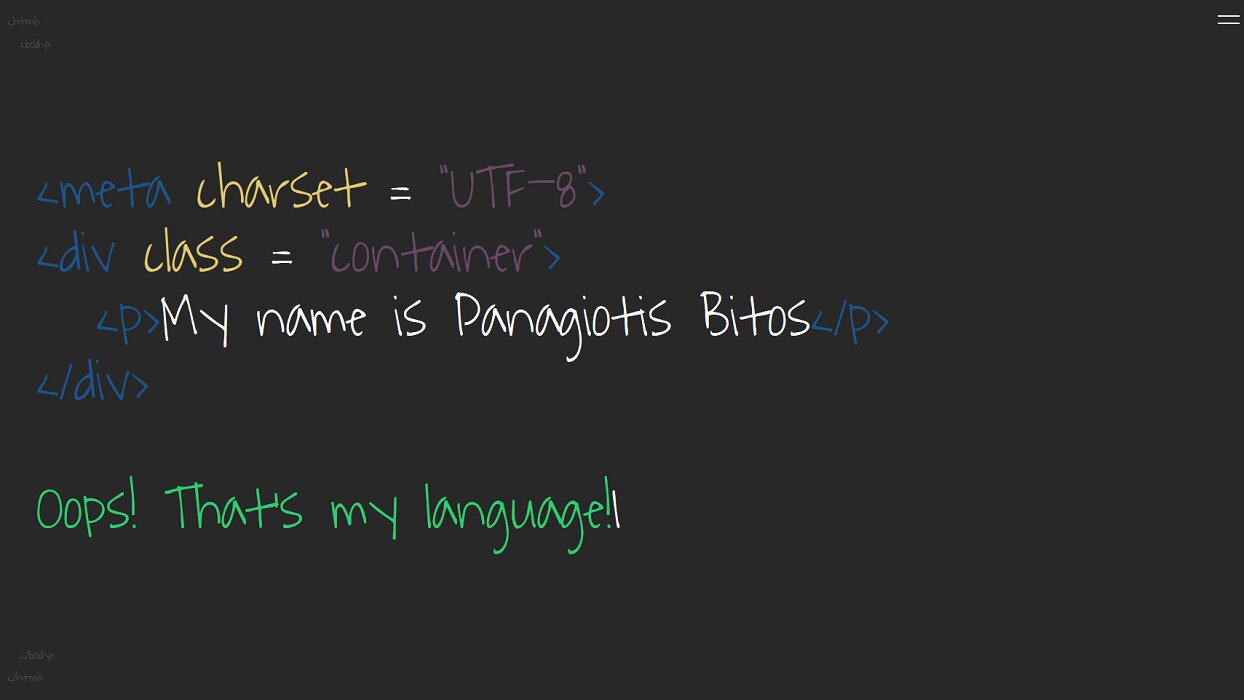 <html>
<body>
<meta charset = "UTF-8">
<div class = "container">
<p>My name is Panagiotis Bitos</p>
</div>
Oops! That's my language!|
</body>
</html>